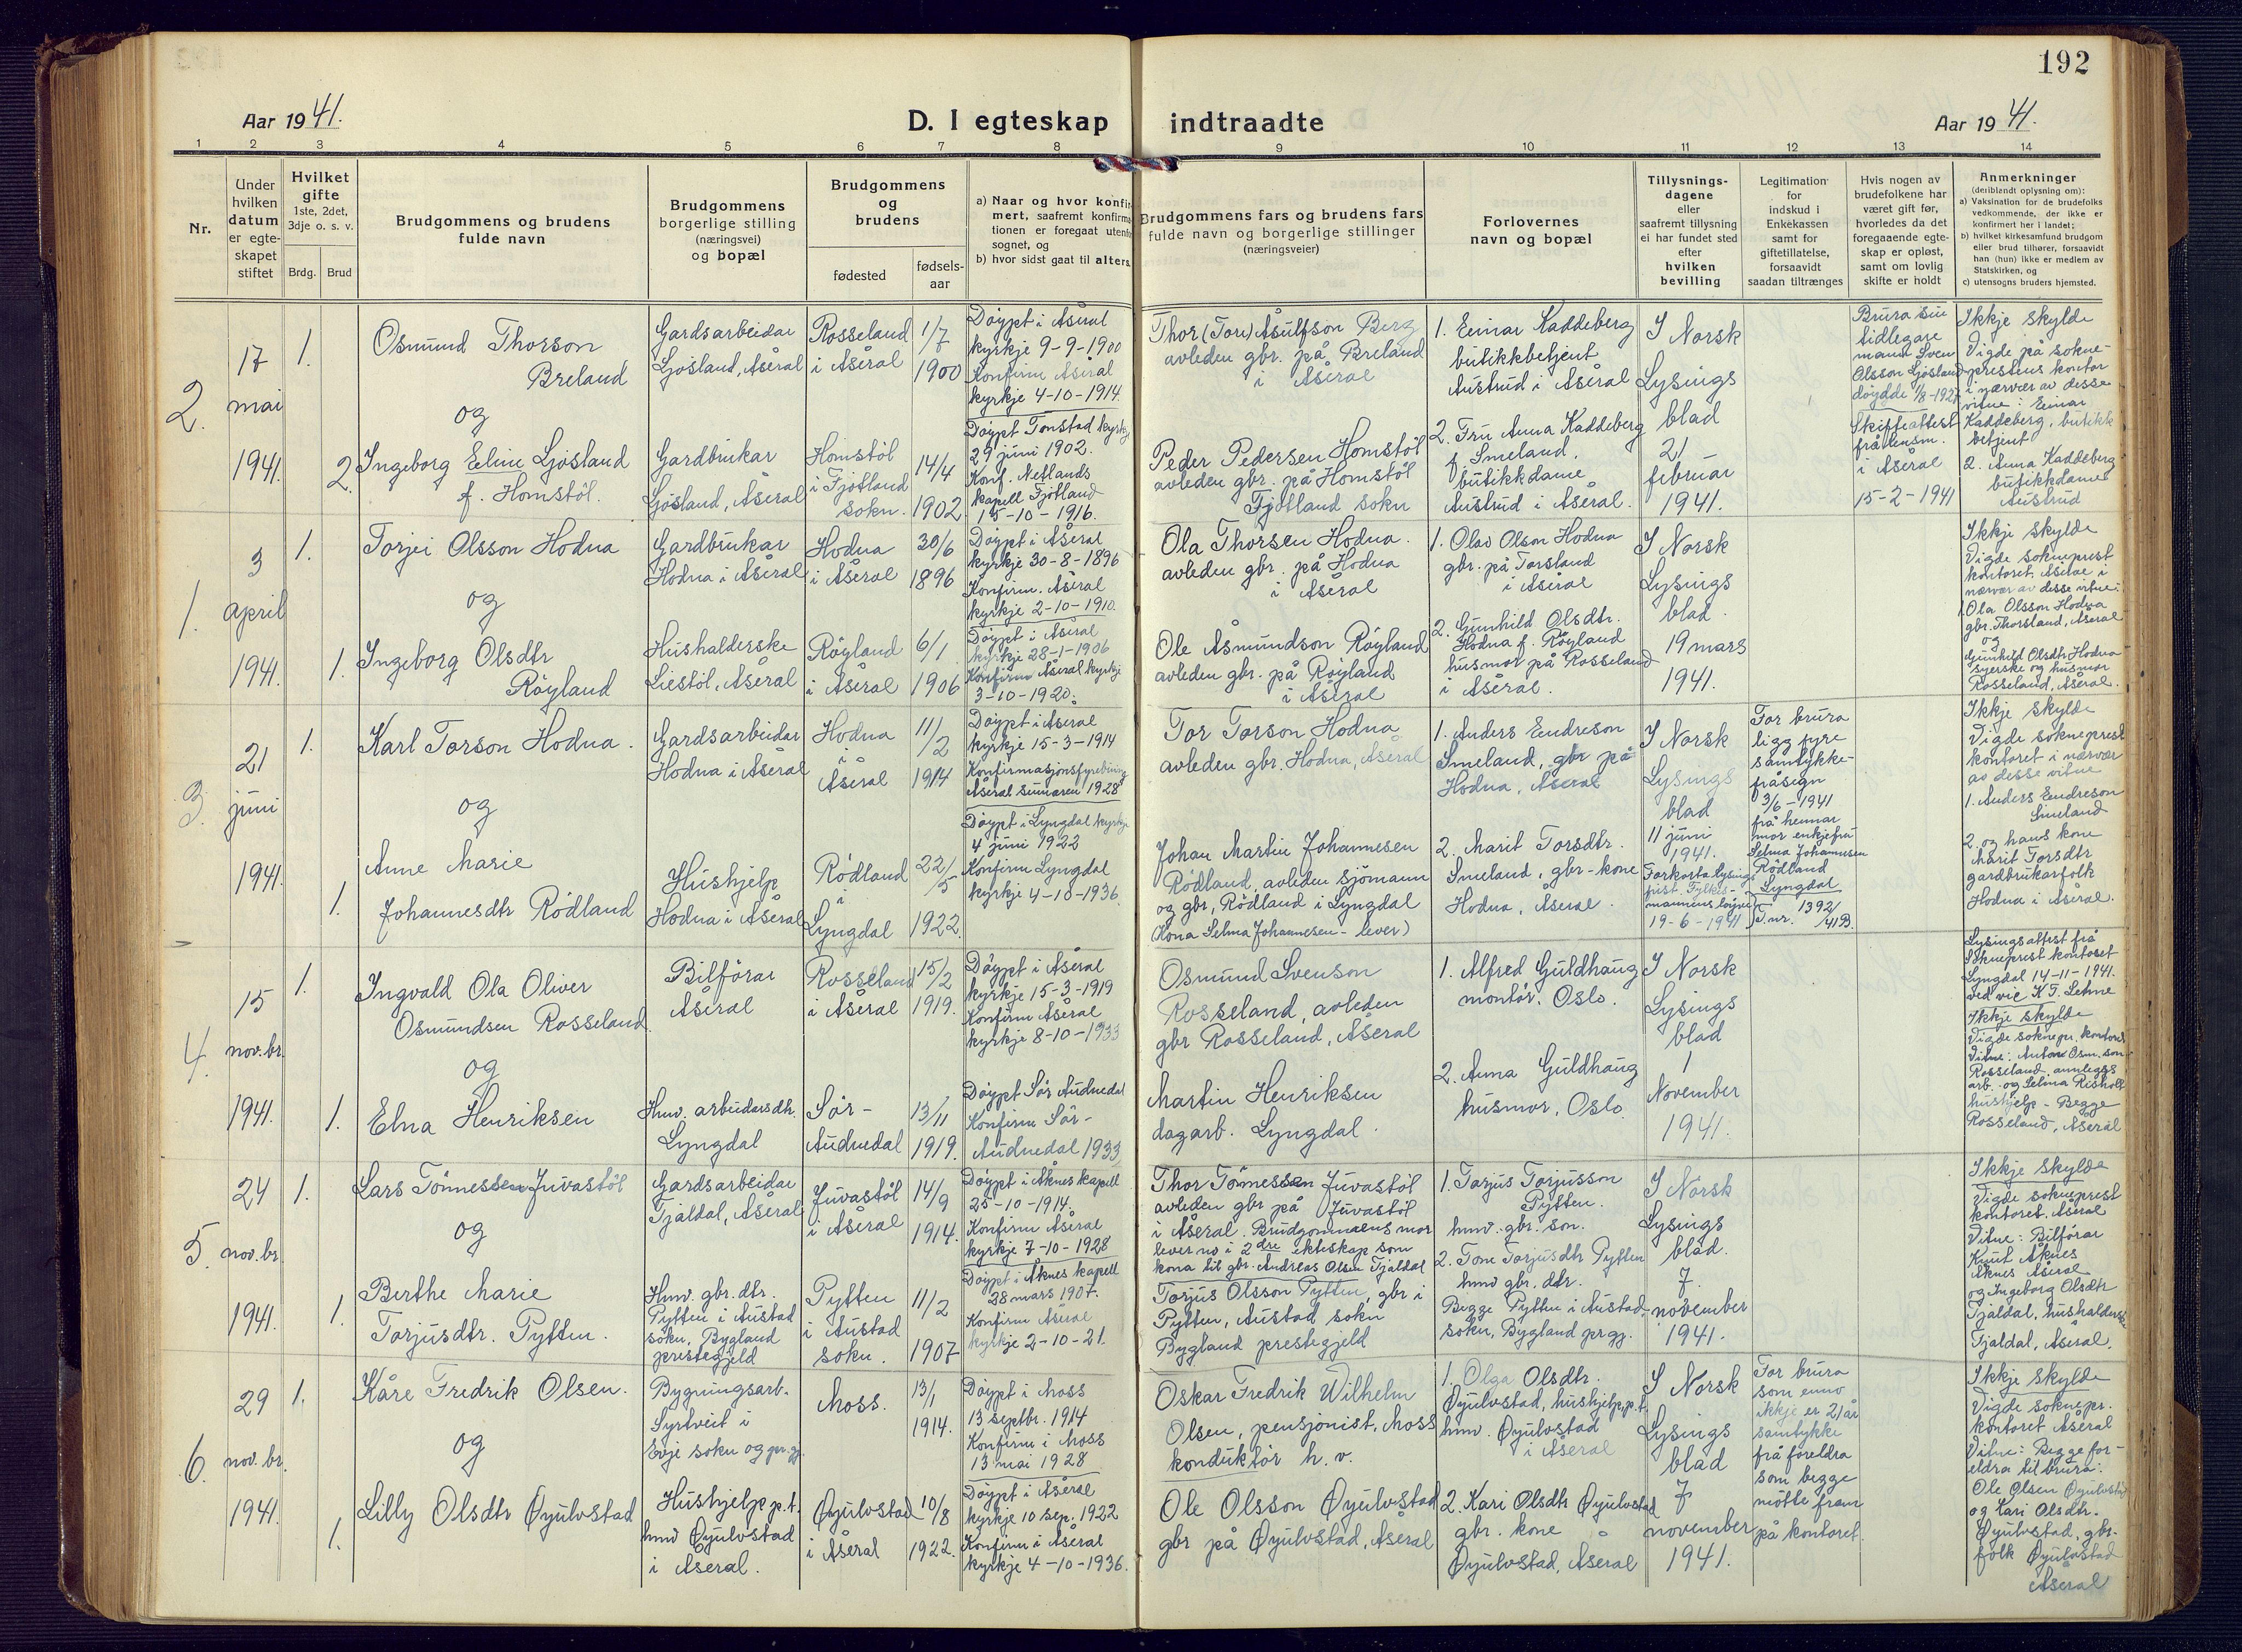 192
Aar 1941.
D. I egteskap indtraadte
Aar 1941.
1 2 3 4 5 6 7 8 9 10 11 12 13 14
Nr.
Under
hvilken
datum
er egte-
skapet
stiftet
Hvilket
gifte
1ste, 2det,
3dje o. s. v.
Brdg. Brud
Brudgommens og brudens
fulde navn
Brudgommens
borgerlige stilling
(næringsvei)
og bopæl
Brudgommens
og
brudens
fødested
fødsels-
aar
a) Naar og hvor konfir-
mert, saafremt konfirma-
tionen er foregaat utenfor
sognet, og
b) hvor sidst gaat til alters.
Brudgommens fars og brudens fars
fulde navn og borgerlige stillinger
(næringsveier)
Forlovernes
navn og bopæl
Tillysnings-
dagene
eller
saafremt tillysning
ei har fundet sted
efter
hvilken
bevilling
Legitimation
for
indskud i
Enkekassen
samt for
giftetillatelse,
forsaavidt
saadan tiltrænges
Hvis nogen av
brudefolkene har
været gift før,
hvorledes da det
foregaaende egte-
skap er opløst,
samt om lovlig
skifte er holdt
Anmerkninger
(deriblandt oplysning om):
a) Vaksination for de brudefolks
vedkommende, der ikke er
konfirmert her i landet;
b) hvilket kirkesamfund brudgom
eller brud tilhører, forsaavidt
han (hun) ikke er medlem av
Statskirken, og
c) utensogns bruders hjemsted.
2.
17
mai
1941.
1.
2.
Osmund Thorson
Breland
og
Ingeborg Eline Ljosland
f. Homstøl.
Gardsarbeidar
Ljosland, Åseral
Gardbrukar
Ljosland, Åseral
Rosseland
i Åseral
Homstøl
i Fjotland
sokn.
1/7
1900
14/4
1902
Døypt i Åseral
kyrkje 9-9-1900
Konfirm Åseral
kyrkje 4-10-1914.
Døypt Tonstad kyrkje
29 juni 1902.
Konf. Netlands
kapell Fjotland
15-10-1916.
Thor (Tore) Åsulfson Berg
avleden gbr. på Breland
i Åseral
Peder Pedersen Homstøl
avleden gbr. på Homstøl
Fjotland sokn
1. Einar Kaddeberg
butikkbetjent
Austrud i Åseral
2. Fru Anna Kaddeberg
f. Smeland.
butikkdame
Austrud i Åseral.
I Norsk
Lysings
blad
21
februar
1941.
Brura sin
tidlegare
mann Sven
Olsson Ljosland
døydde 1/8-1927
Skifteattest
frå lensm.
i Åseral
15-2-1941
Ikkje skylde
Vigde på sokne-
prestens kontor
i nærvær av desse
vitne: Einar
Kaddeberg, butikk
betjent
2. Anna Kaddeberg
butikkdame
Austrud
1.
3
april
1941.
1.
1.
Torjei Olsson Hodna
og
Ingeborg Olsdtr
Røyland
Gardbrukar
Hodna i Åseral
Hushalderske
Liestøl, Åseral
Hodna
i Åseral
Røyland
i Åseral
30/6
1896
6/1
1906
Døypt i Åseral
kyrkje 30-8-1896
Konfirm. Åseral
kyrkje 2-10-1910.
Døypt i Åseral
kyrkje 28-1-1906
Konfirm Åseral kyrkje
3-10-1920.
Ola Thorsen Hodna.
avleden gbr. på Hodna
i Åseral
Ole Åsmundson Røyland
avleden gbr. på Røyland
i Åseral
1. Olav Olson Hodna
gbr. på Torsland
i Åseral
2. Gunhild Olsdtr.
Hodna f. Røyland
husmor på Rosseland
i Åseral.
I Norsk
Lysings
blad.
19 mars
1941.
Ikkje skylde
Vigde sokneprest
kontoret, Åseral i
nærvær av desse vitne:
1. Ola Olsson Hodna
gbr. Thorsland, Åseral
og
Gunhild Olsdtr Hodna
syerske og husmor
Rosseland, Åseral.
3.
21
juni
1941.
1.
1.
Karl Torson Hodna.
og
Anne Marie
Johannesdtr Rødland
Gardsarbeidar
Hodna i Åseral
Hushjelp
Hodna i Åseral
Hodna
i
Åseral
Rødland
i
Lyngdal
11/2
1914
22/5
1922.
Døypt i Åseral
kyrkje 15-3-1914
Konfirmasjonsfyrebuing
Åseral sumaren 1928
Døypt i Lyngdal kyrkje
4 juni 1922
Konfirm Lyngdal
kyrkje 4-10-1936.
Tor Torson Hodna
avleden gbr. Hodna, Åseral
Johan Martin Johannesen
Rødland, avleden sjømann
og gbr, Rødland i Lyngdal
(Kona Selma Johannesen - lever)
1. Anders Eendreson
Smeland, gbr på
Hodna, Åseral
2. Marit Torsdtr.
Smeland, gbr-kone
Hodna, Åseral.
I Norsk
Lysings
blad
11 juni
1941.
Forkorta lysings
frist. Fylkes-
mannens løyve
19-6-1941
For brura
ligg fyre
samtykke-
fråsegn
3/6-1941
frå hennar
mor enkjefru
Selma Johannesen
Rødland
Lyngdal
J.nr. 1392/41B.
Ikkje skylde
Vigde sokneprest
kontoret i nærvær
av desse vitne
1. Anders Eendreson
Smeland
2. og hans kone
Marit Torsdtr
gardbrukarfolk
Hodna i Åseral.
4.
15
nov.br.
1941.
1.
1.
Ingvald Ola Oliver
Osmundsen Rosseland.
og
Elna Henriksen
Bilførar
Åseral
Hmv. arbeidarsdtr.
Lyngdal
Rosseland
i Åseral
Sør-
Audnedal
15/2
1919.
13/11
1919.
Døypt i Åseral
kyrkje 15-3-1919
Konfirm Åseral
kyrkje 8-10-1933
Døypt Sør Audnedal
Konfirm Sør-
Audnedal 1933
Osmund Svenson
Rosseland, avleden
gbr Rosseland, Åseral
Martin Henriksen
dagarb. Lyngdal.
1. Alfred Guldhaug
montør. Oslo.
2. Anna Guldhaug
husmor, Oslo.
I Norsk
Lysings
blad
1
November
1941.
Lysingsattest frå
Sokneprest kontoret
Lyngdal 14-11-1941.
ved vic K.T. Lehne
Ikkje skylde
Vigde soknepr. kontoret
Vitne: Anton Osm.son
Rosseland, anleggs
arb. og Selma Risholt
hushjelp - Begge
Rosseland, Åseral
5.
24
nov.br
1941.
1.
1.
Lars Tønnessen Juvastøl
og
Berthe Marie
Torjusdtr. Pytten.
Gardsarbeidar
Tjaldal, Åseral
Hmv. gbr. dtr.
Pytten i Austad
sokn, Bygland
prestegjeld
Juvastøl
i Åseral
Pytten
i Austad
sokn.
14/9
1914.
11/2
1907
Døypt i Åknes kapell
25-10-1914.
Konfirm Åseral
kyrkje 7-10-1928
Døypt i Åknes kapell
28 mars 1907.
Konfirm Åseral
kyrkje 2-10-21.
Thor Tønnessen Juvastøl
avleden gbr på Juvastøl
i Åseral. Brudgommens mor
lever no i 2dre ekteskap som
kona til gbr. Andreas Olsen Tjaldal
Torjus Olsson Pytten, gbr i
Pytten, Austad sokn
Bygland prestegjeld
1. Tarjus Torjusson
Pytten.
hmv. gbr. son.
2. Tone Torjusdtr Pytten
hmv gbr. dtr.
Begge Pytten i Austad
sokn, Bygland prgj.
I Norsk
Lysings
blad.
7.
november
1941.
Ikkje skylde
Vigde sokneprest
kontoret, Åseral
Vitne: Bilførar
Knut Åknes
Åknes Åseral
og Ingeborg Olsdtr
Tjaldal, hushalderske
Tjaldal, Åseral.
6.
29
nov.br.
1941.
1.
1.
Kåre Fredrik Olsen.
og
Lilly Olsdtr Øyulvstad
Bygningsarb.
Syrtveit i
Evje sokn og pr.gj.
Hushjelp p.t.
hmv Øyulvstad
i Åseral.
Moss.
Øyulvstad
i Åseral
13/1
1914.
10/8
1922.
Døypt i Moss
13 septbr. 1914
Konfirm i Moss
13 mai 1928
Døypt i Åseral
kyrkje 10 sep. 1922
Konfirm i Åseral
kyrkje 4-10-1936.
Oskar Fredrik Wilhelm
Olsen, pensjonist, Moss
konduktør h. v.
Ole Olsson Øyulvstad
gbr på Øyulvstad, Åseral
1. Olga Olsdtr.
Øyulvstad, hushjelp, p.t.
hmv. Øyulvstad
i Åseral
2. Kari Olsdtr Øyulvstad
gbr. kone
Øyulvstad, Åseral
I Norsk
Lysings
blad
7
november
1941.
For brura
som enno
ikkje er 21 år
samtykke
frå foreldra
som begge
møtte fram
på kontoret.
Ikkje skylde
Vigde soknepr.
kontoret Åseral
Vitne: Begge for-
eldra til brura:
Ole Olsen Øyulvstad
og Kari Olsdtr.
Øyulvstad, gbr-
folk Øyulvstad
Åseral